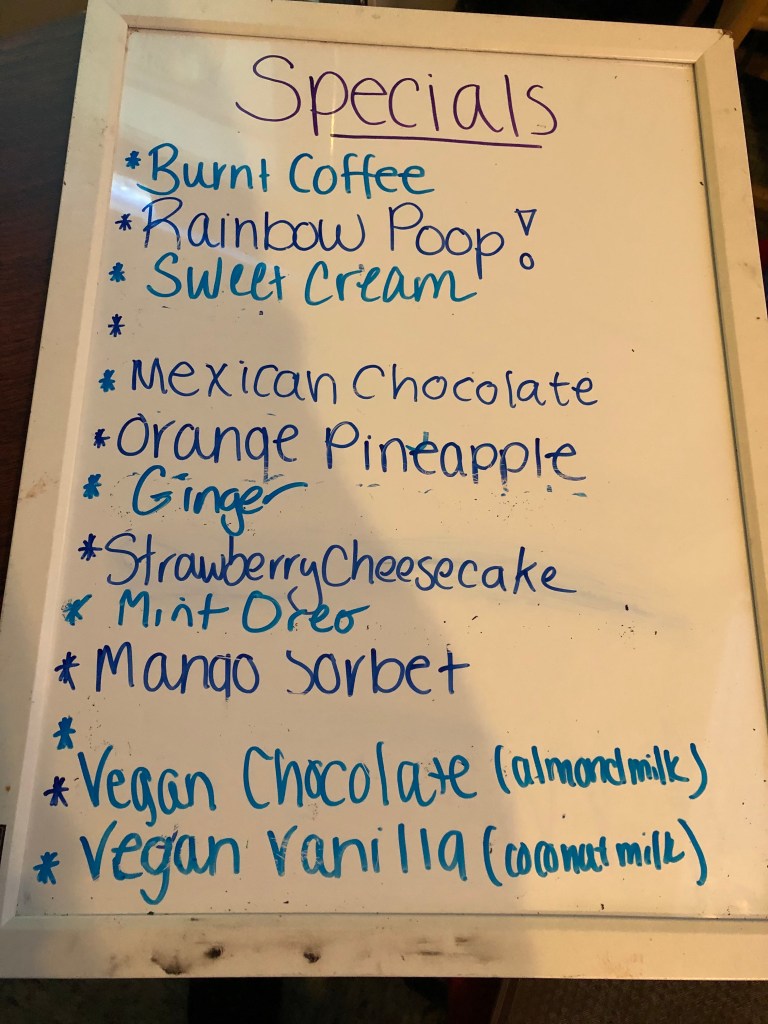 Specials
* Burnt Coffee
* Rainbow Poop!
* Sweet Cream
*
* Mexican Chocolate
* Orange Pineapple
* Ginger
* Strawberry Cheesecake
* Mint Oreo
* Mango Sorbet
*
* Vegan Chocolate (almond milk)
* Vegan Vanilla (coconut milk)